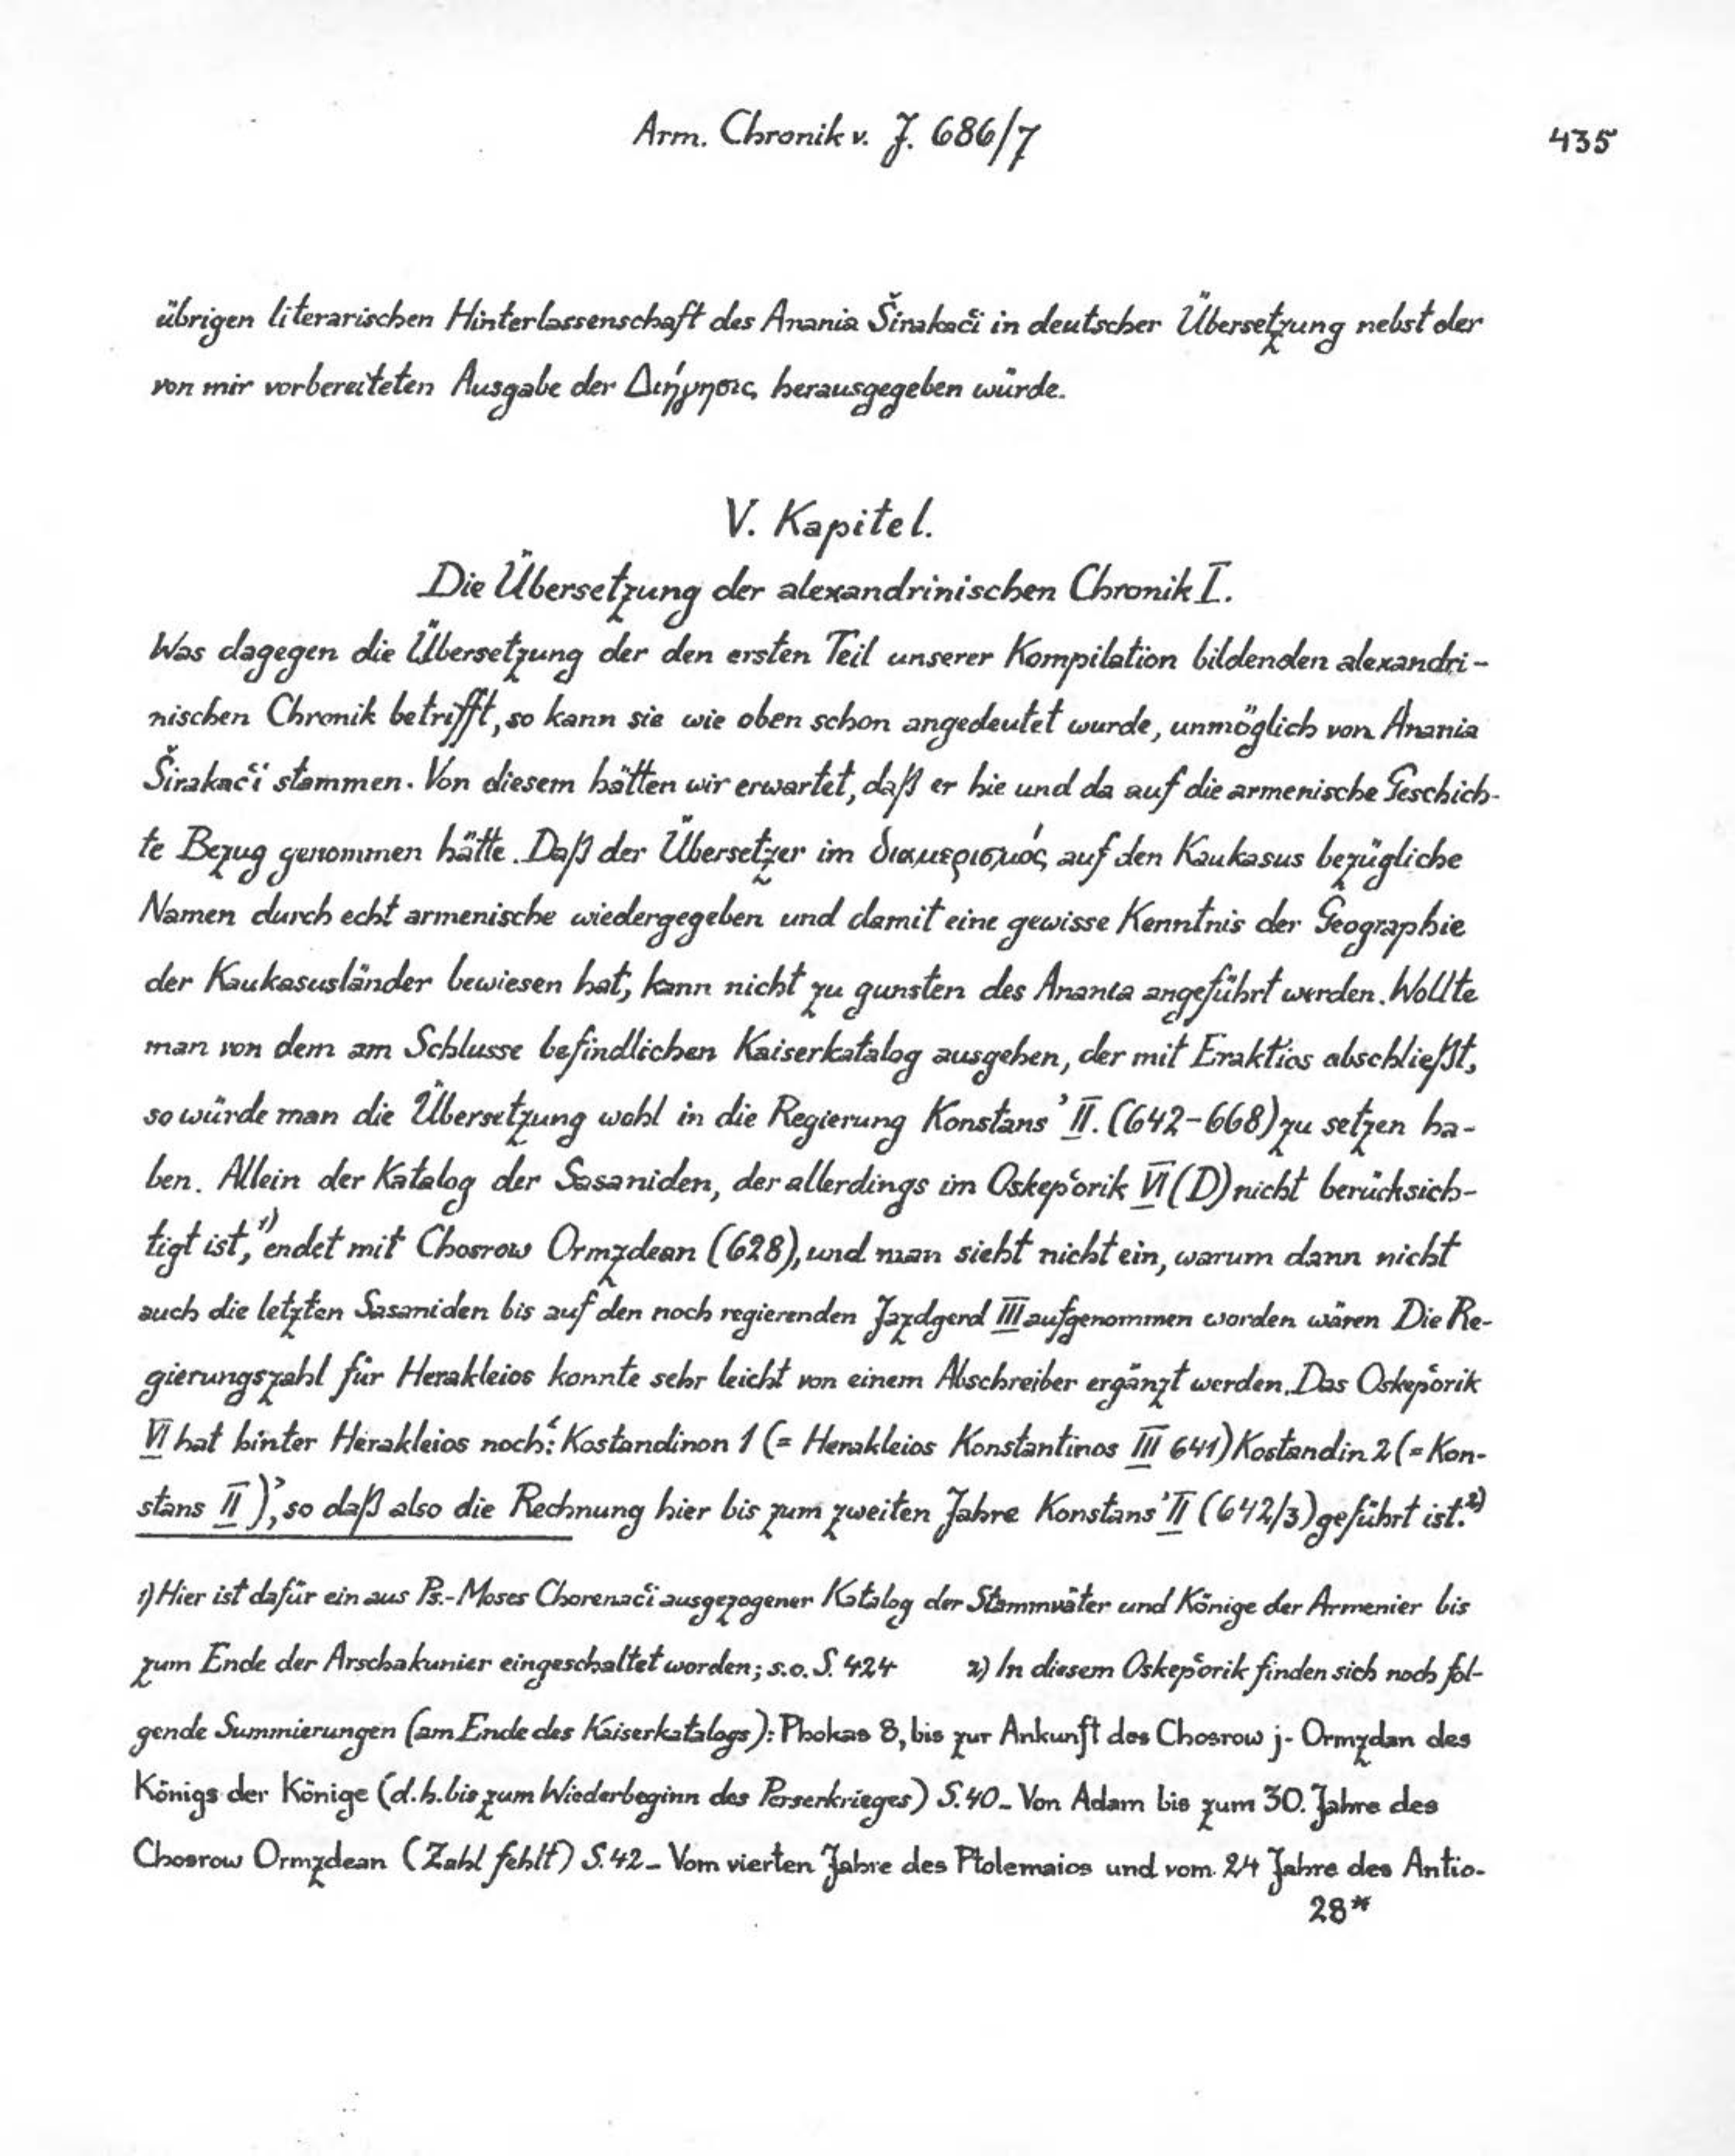 Arm. Chronik v. J. 686/7 435
übrigen literarischen Hinterlassenschaft des Anania Širakac̔i in deutscher Übersetzung nebst der
von mir vorbereiteten Ausgabe der Διήγησις herausgegeben würde.
V. Kapitel.
Die Übersetzung der alexandrinischen Chronik I.
Was dagegen die Übersetzung der den ersten Teil unserer Kompilation bildenden alexandri-
nischen Chronik betrifft, so kann sie wie oben schon angedeutet wurde, unmöglich von Anania
Širakac̔i stammen. Von diesem hätten wir erwartet, daß er hie und da auf die armenische Geschich-
te Bezug genommen hätte. Daß der Übersetzer im διαμερισμός auf den Kaukasus bezügliche
Namen durch echt armenische wiedergegeben und damit eine gewisse Kenntnis der Geographie
der Kaukasusländer bewiesen hat, kann nicht zu gunsten des Anania angeführt werden. Wollte
man von dem am Schlusse befindlichen Kaiserkatalog ausgehen, der mit Eraktios abschließt,
so würde man die Übersetzung wohl in die Regierung Konstans' II. (642-668) zu setzen ha-
ben. Allein der Katalog der Sasaniden, der allerdings im Oskep̔orik VI (D) nicht berücksich-
tigt ist,¹⁾ endet mit Chosrow Ormzdean (628), und man sieht nicht ein, warum dann nicht
auch die letzten Sasaniden bis auf den noch regierenden Jazdgerd III aufgenommen worden wären Die Re-
gierungszahl für Herakleios konnte sehr leicht von einem Abschreiber ergänzt werden. Das Oskep̔orik
VI hat hinter Herakleios noch: ‘Kostandinon 1 (= Herakleios Konstantinos III 641) Kostandin 2 (= Kon-
stans II)’, so daß also die Rechnung hier bis zum zweiten Jahre Konstans' II (642/3) geführt ist.²⁾
1) Hier ist dafür ein aus Ps.-Moses Chorenac̔i ausgezogener Katalog der Stammväter und Könige der Armenier bis
zum Ende der Arschakunier eingeschaltet worden; s.o. S. 424 2) In diesem Oskep̔orik finden sich noch fol-
gende Summierungen (am Ende des Kaiserkatalogs): Phokas 8, bis zur Ankunft des Chosrow j- Ormzdan des
Königs der Könige (d.h. bis zum Wiederbeginn des Perserkrieges) S. 40_ Von Adam bis zum 30. Jahre des
Chosrow Ormzdean (Zahl fehlt) S. 42_ Vom vierten Jahre des Ptolemaios und vom 24 Jahre des Antio-
28*